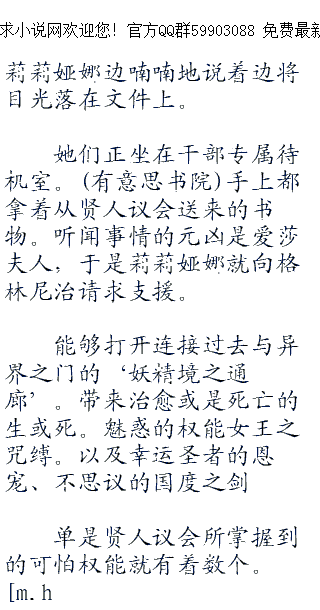 求小说网欢迎您! 官方QQ群59903088 免费最新
莉莉娅娜边喃喃地说着边将
目光落在文件上。
她们正坐在干部专属待
机室。(有意思书院)手上都
拿着从贤人议会送来的书
物。听闻事情的元凶是爱莎
夫人，于是莉莉娅娜就向格
林尼治请求支援。
能够打开连接过去与异
界之门的‘妖精境之通
廊’。带来治愈或是死亡的
生或死。魅惑的权能女王之
咒缚。以及幸运圣者的恩
宠、不思议的国度之剑
单是贤人议会所掌握到
的可怕权能就有着数个。
[m.h